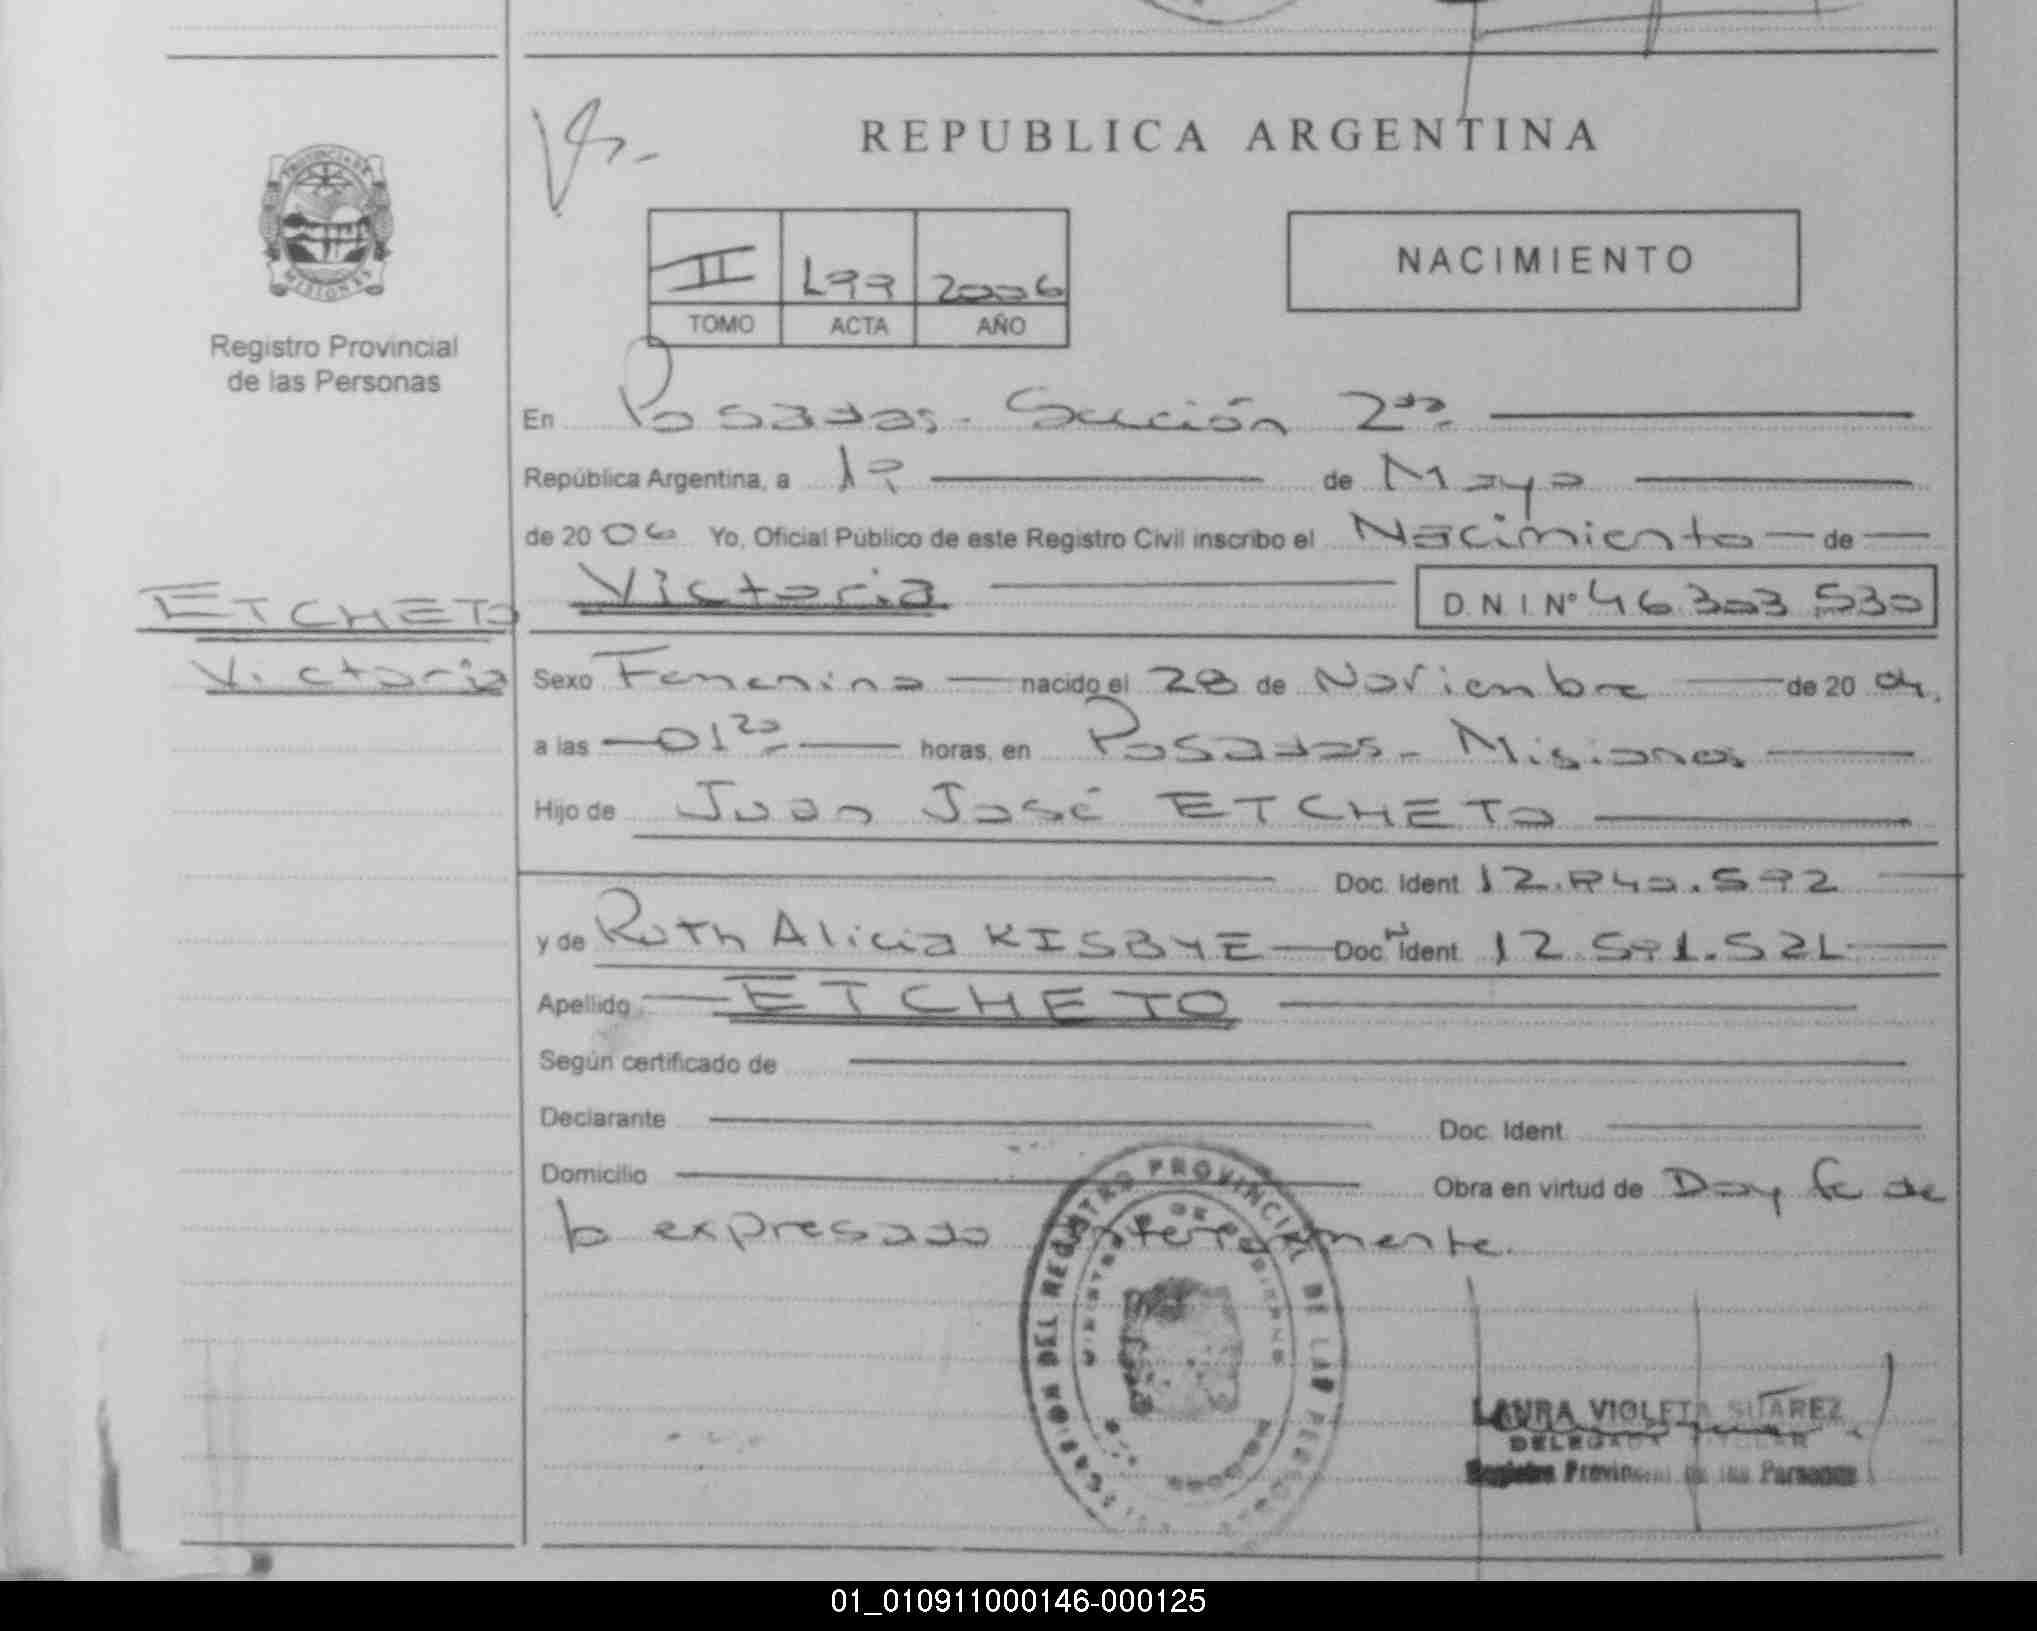 REPUBLICA ARGENTINA
PROVINCIA DE
MISIONES
Registro Provincial
de las Personas
NACIMIENTO
II L99 2006
TOMO ACTA AÑO
En Posadas - Sección 2da
República Argentina, a de Mayo
de 2006 Yo, Oficial Público de este Registro Civil inscribo el Nacimiento de
ETCHETO
Victoria
Victoria D.N.I.Nº 46.303.530
Sexo Femenino nacido el 28 de Noviembre de 2004.
a las 01 20 horas, en Posadas - Misiones
Hijo de Juan José ETCHETO
Doc. Ident
y de Ruth Alicia KISBYE Doc. Ident
Apellido ETCHETO
Según certificado de
Declarante Doc. Ident.
Domicilio Obra en virtud de Doy fe de
lo expresado anteriormente.
DEL REGISTRO PROVINCIAL DE LAS PERSONAS
MINISTERIO DE GOBIERNO
POSADAS
LAURA VIOLETA SUAREZ
DELEGADA TITULAR
Registro Provincial de las Personas
01_010911000146-000125